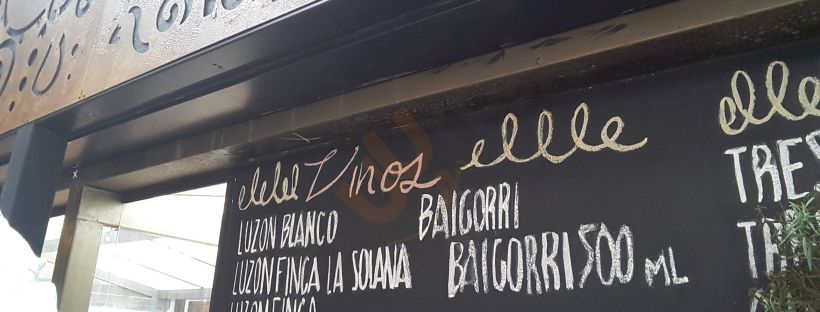 Vinos
LUZON BLANCO
BAIGORRI
LUZON FINCA LA SOLANA
BAIGORRI 500 ML
LUZON FINCA
TRES